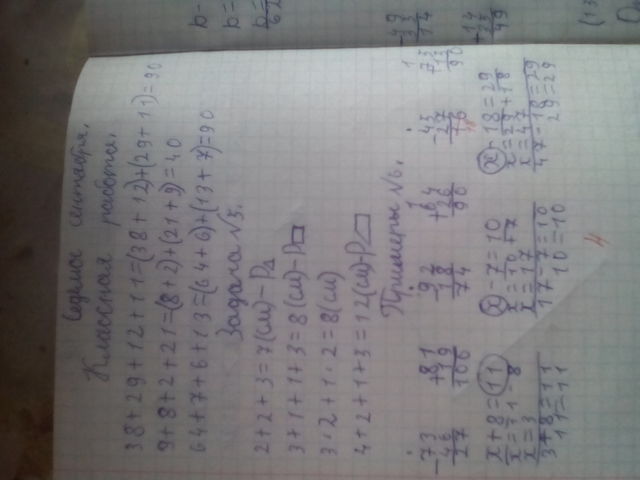 Седьмое сентября.
Классная работа.
38+29+12+11=(38+12)+(29+11)=90
9+8+2+21=(8+2)+(21+9)=40
64+7+6+13=(64+6)+(13+7)=90
Задача №5.
2+2+3=7(см)-P△
3+1+1+3=8(см)-P□
3·2+1·2=8(см)
4+2+1+3=12(см)-P
Примеры №6.
-73 +81 -92 +64 -45 +73
46 19 18 26 27 17
27 100 74 90 18 90
x+8=11 x-7=10 x-18=29
x=11-8 x=10+7 x=29+18
x=3 x=17 x=47
3+8=11 17-7=10 47-18=29
11=11 10=10 29=29
4